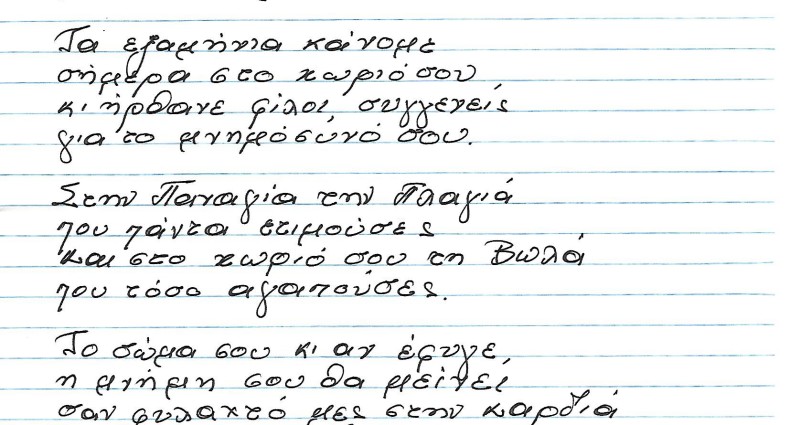 Τα εξαμήνια κάνομε
σήμερα στο χωριό σου
κι ήρθανε φίλοι, συγγενείς
για το μνημόσυνό σου.
Στην Παναγία την Πλαγιά
που πάντα ετιμούσες
και στο χωριό σου τη Βωλά
που τόσο αγαπούσες.
Το σώμα σου κι αν έφυγε,
η μνήμη σου θα μείνει
σαν φυλαχτό μες στην καρδιά